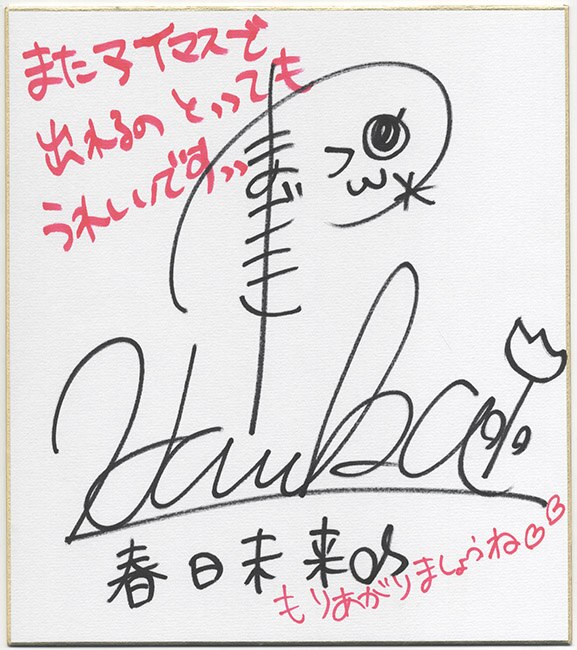 またアイマスで
出れるの とっても
うれしいです
春日未来
もりあがりましょうね